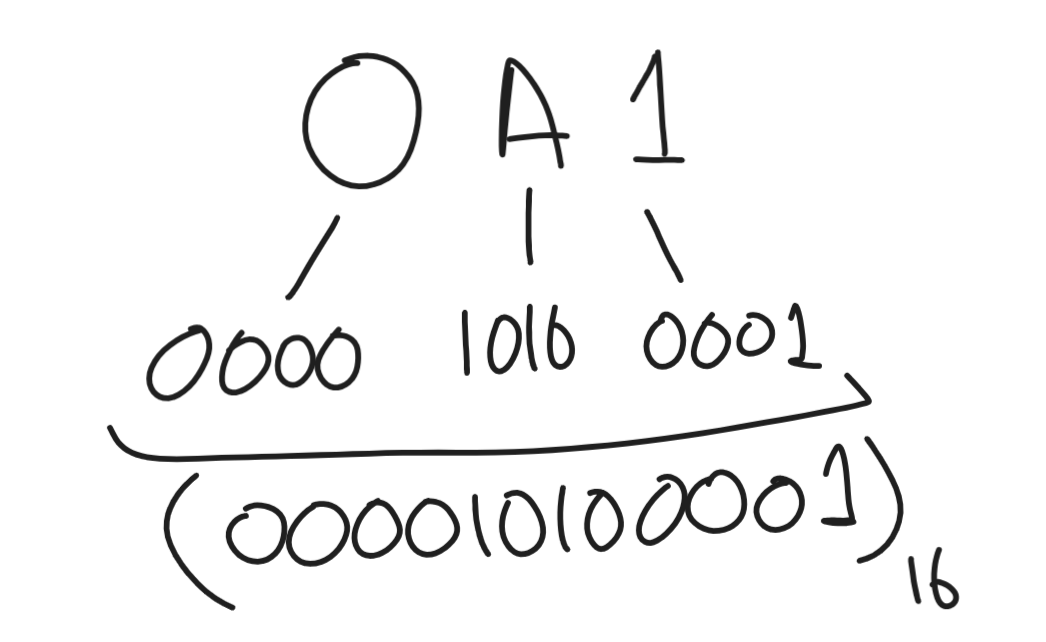 0 A 1
0000 1010 0001
(000010100001)16